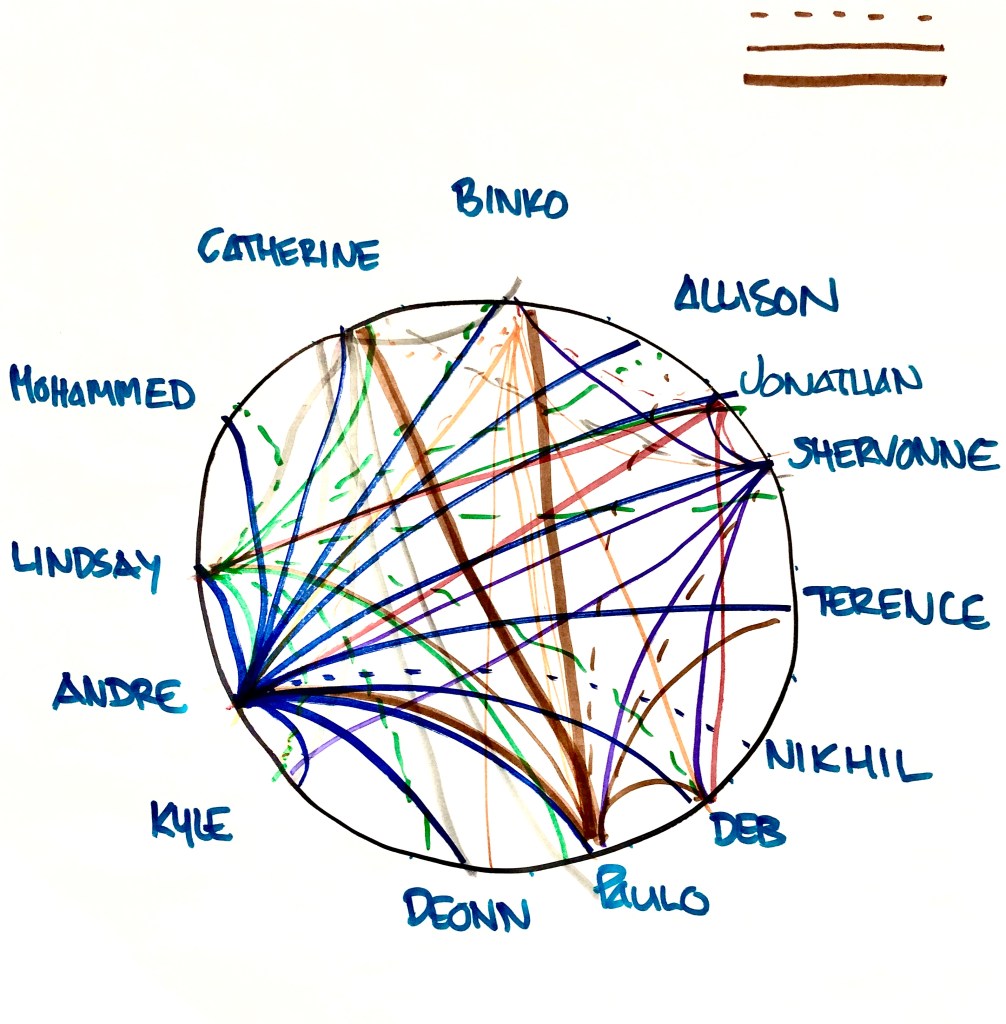 BINKO
CATHERINE
ALLISON
MOHAMMED
JONATHAN
SHERVONNE
LINDSAY
TERENCE
ANDRE
NIKHIL
KYLE
DEB
DEONN
PAULO